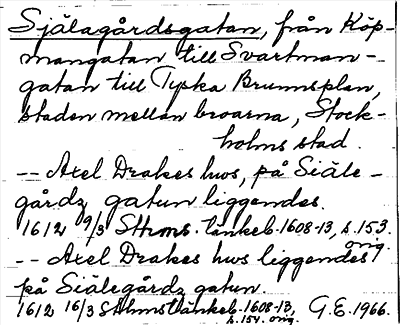 Själagårdsgatan, från Köp-
mangatan till Svartman-
gatan till Tyska Brunnsplan,
staden mellan broarna, Stock-
holms stad.
-- Axel Drakes hws, på Siäle-
gårdz gatun liggendes.
1612 9/3 Sthms. tänkeb. 1608-13, s. 153.
orig.
-- Axel Drakes hws liggendes
på Siälegårdz gatun.
1612 16/3 Sthmstänkeb. 1608-13, G.E. 1966.
s. 154. orig.